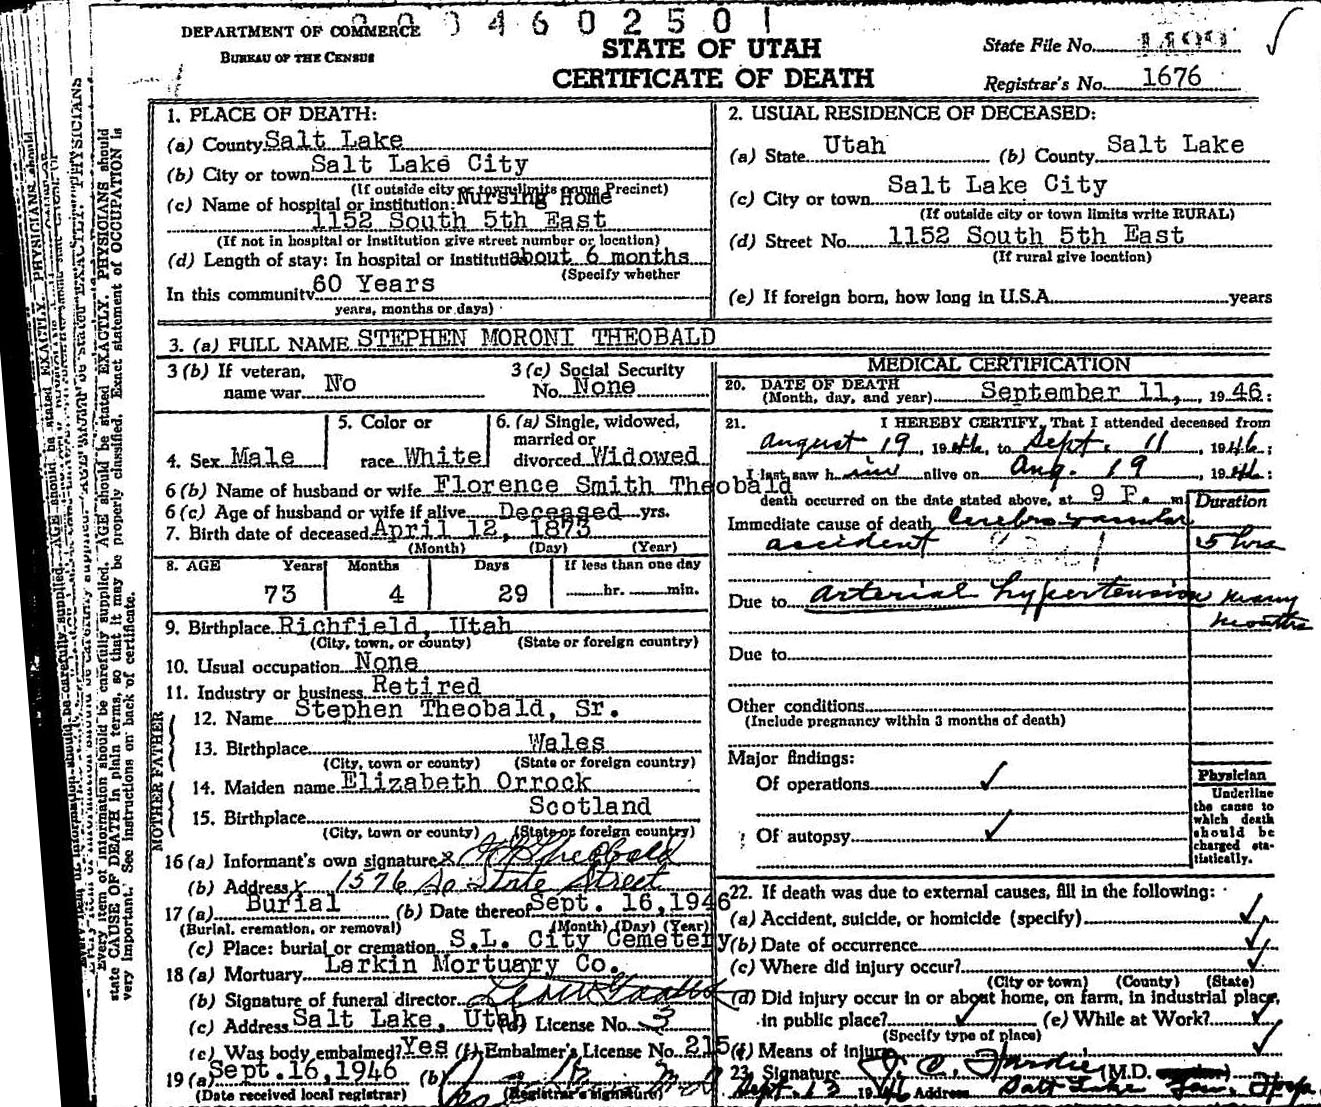 004602501
DEPARTMENT OF COMMERCE
BUREAU OF THE CENSUS
STATE OF UTAH
CERTIFICATE OF DEATH
State File No.
Registrar's No. 1676
1. PLACE OF DEATH:
(a) County Salt Lake
(b) City or town Salt Lake City
(If outside city or town limits name Precinct)
(c) Name of hospital or institution: Nursing Home
1152 South 5th East
(If not in hospital or institution give street number or location)
(d) Length of stay: In hospital or institution about 6 months
(Specify whether
In this community 60 Years
years, months or days)
2. USUAL RESIDENCE OF DECEASED:
(a) State Utah (b) County Salt Lake
(c) City or town Salt Lake City
(If outside city or town limits write RURAL)
(d) Street No. 1152 South 5th East
(If rural give location)
(e) If foreign born, how long in U.S.A. years
3. (a) FULL NAME STEPHEN MORONI THEOBALD
3 (b) If veteran, name war No
3 (c) Social Security No. None
4. Sex Male
5. Color or race White
6. (a) Single, widowed, married or divorced Widowed
6 (b) Name of husband or wife Florence Smith Theobald
6 (c) Age of husband or wife if alive Deceased yrs.
7. Birth date of deceased April 12, 1873
(Month) (Day) (Year)
8. AGE Years Months Days If less than one day
73 4 29 hr. min.
9. Birthplace Richfield, Utah
(City, town, or county) (State or foreign country)
10. Usual occupation None
11. Industry or business Retired
FATHER
12. Name Stephen Theobald, Sr.
13. Birthplace Wales
(City, town or county) (State or foreign country)
MOTHER
14. Maiden name Elizabeth Orrock
15. Birthplace Scotland
(City, town or county) (State or foreign country)
16 (a) Informant's own signature x Theobald
(b) Address x 1576 So State Street
17 (a) Burial (b) Date thereof Sept. 16, 1946
(Burial, cremation, or removal) (Month) (Day) (Year)
(c) Place: burial or cremation S.L. City Cemetery
18 (a) Mortuary Larkin Mortuary Co.
(b) Signature of funeral director
(c) Address Salt Lake, Utah (d) License No. 3
(e) Was body embalmed? Yes (f) Embalmer's License No. 215
19 (a) Sept. 16, 1946 (b)
(Date received local registrar) (Registrar's signature)
MEDICAL CERTIFICATION
20. DATE OF DEATH
(Month, day, and year) September 11, 1946:
21. I HEREBY CERTIFY, That I attended deceased from
August 19, 1946, to Sept. 11, 1946;
I last saw him alive on Aug. 19, 1946;
death occurred on the date stated above, at 9 P. m
Duration
Immediate cause of death Cerebrovascular
accident 5 hrs
Due to arterial hypertension many
months
Due to
Other conditions
(Include pregnancy within 3 months of death)
Major findings:
Of operations ✓
Of autopsy ✓
Physician
Underline
the cause to
which death
should be
charged sta-
tistically.
22. If death was due to external causes, fill in the following:
(a) Accident, suicide, or homicide (specify) ✓
(b) Date of occurrence ✓
(c) Where did injury occur? ✓
(City or town) (County) (State)
(d) Did injury occur in or about home, on farm, in industrial place,
in public place? ✓ (e) While at Work? ✓
(Specify type of place)
(f) Means of injury ✓
23. Signature (M.D.
Sept. 13 1946 Address Salt Lake Gen. Hosp.
Every item of information should be carefully supplied. AGE should be stated EXACTLY. PHYSICIANS should
state CAUSE OF DEATH in plain terms, so that it may be properly classified. Exact statement of OCCUPATION is
very important. See instructions on back of certificate.